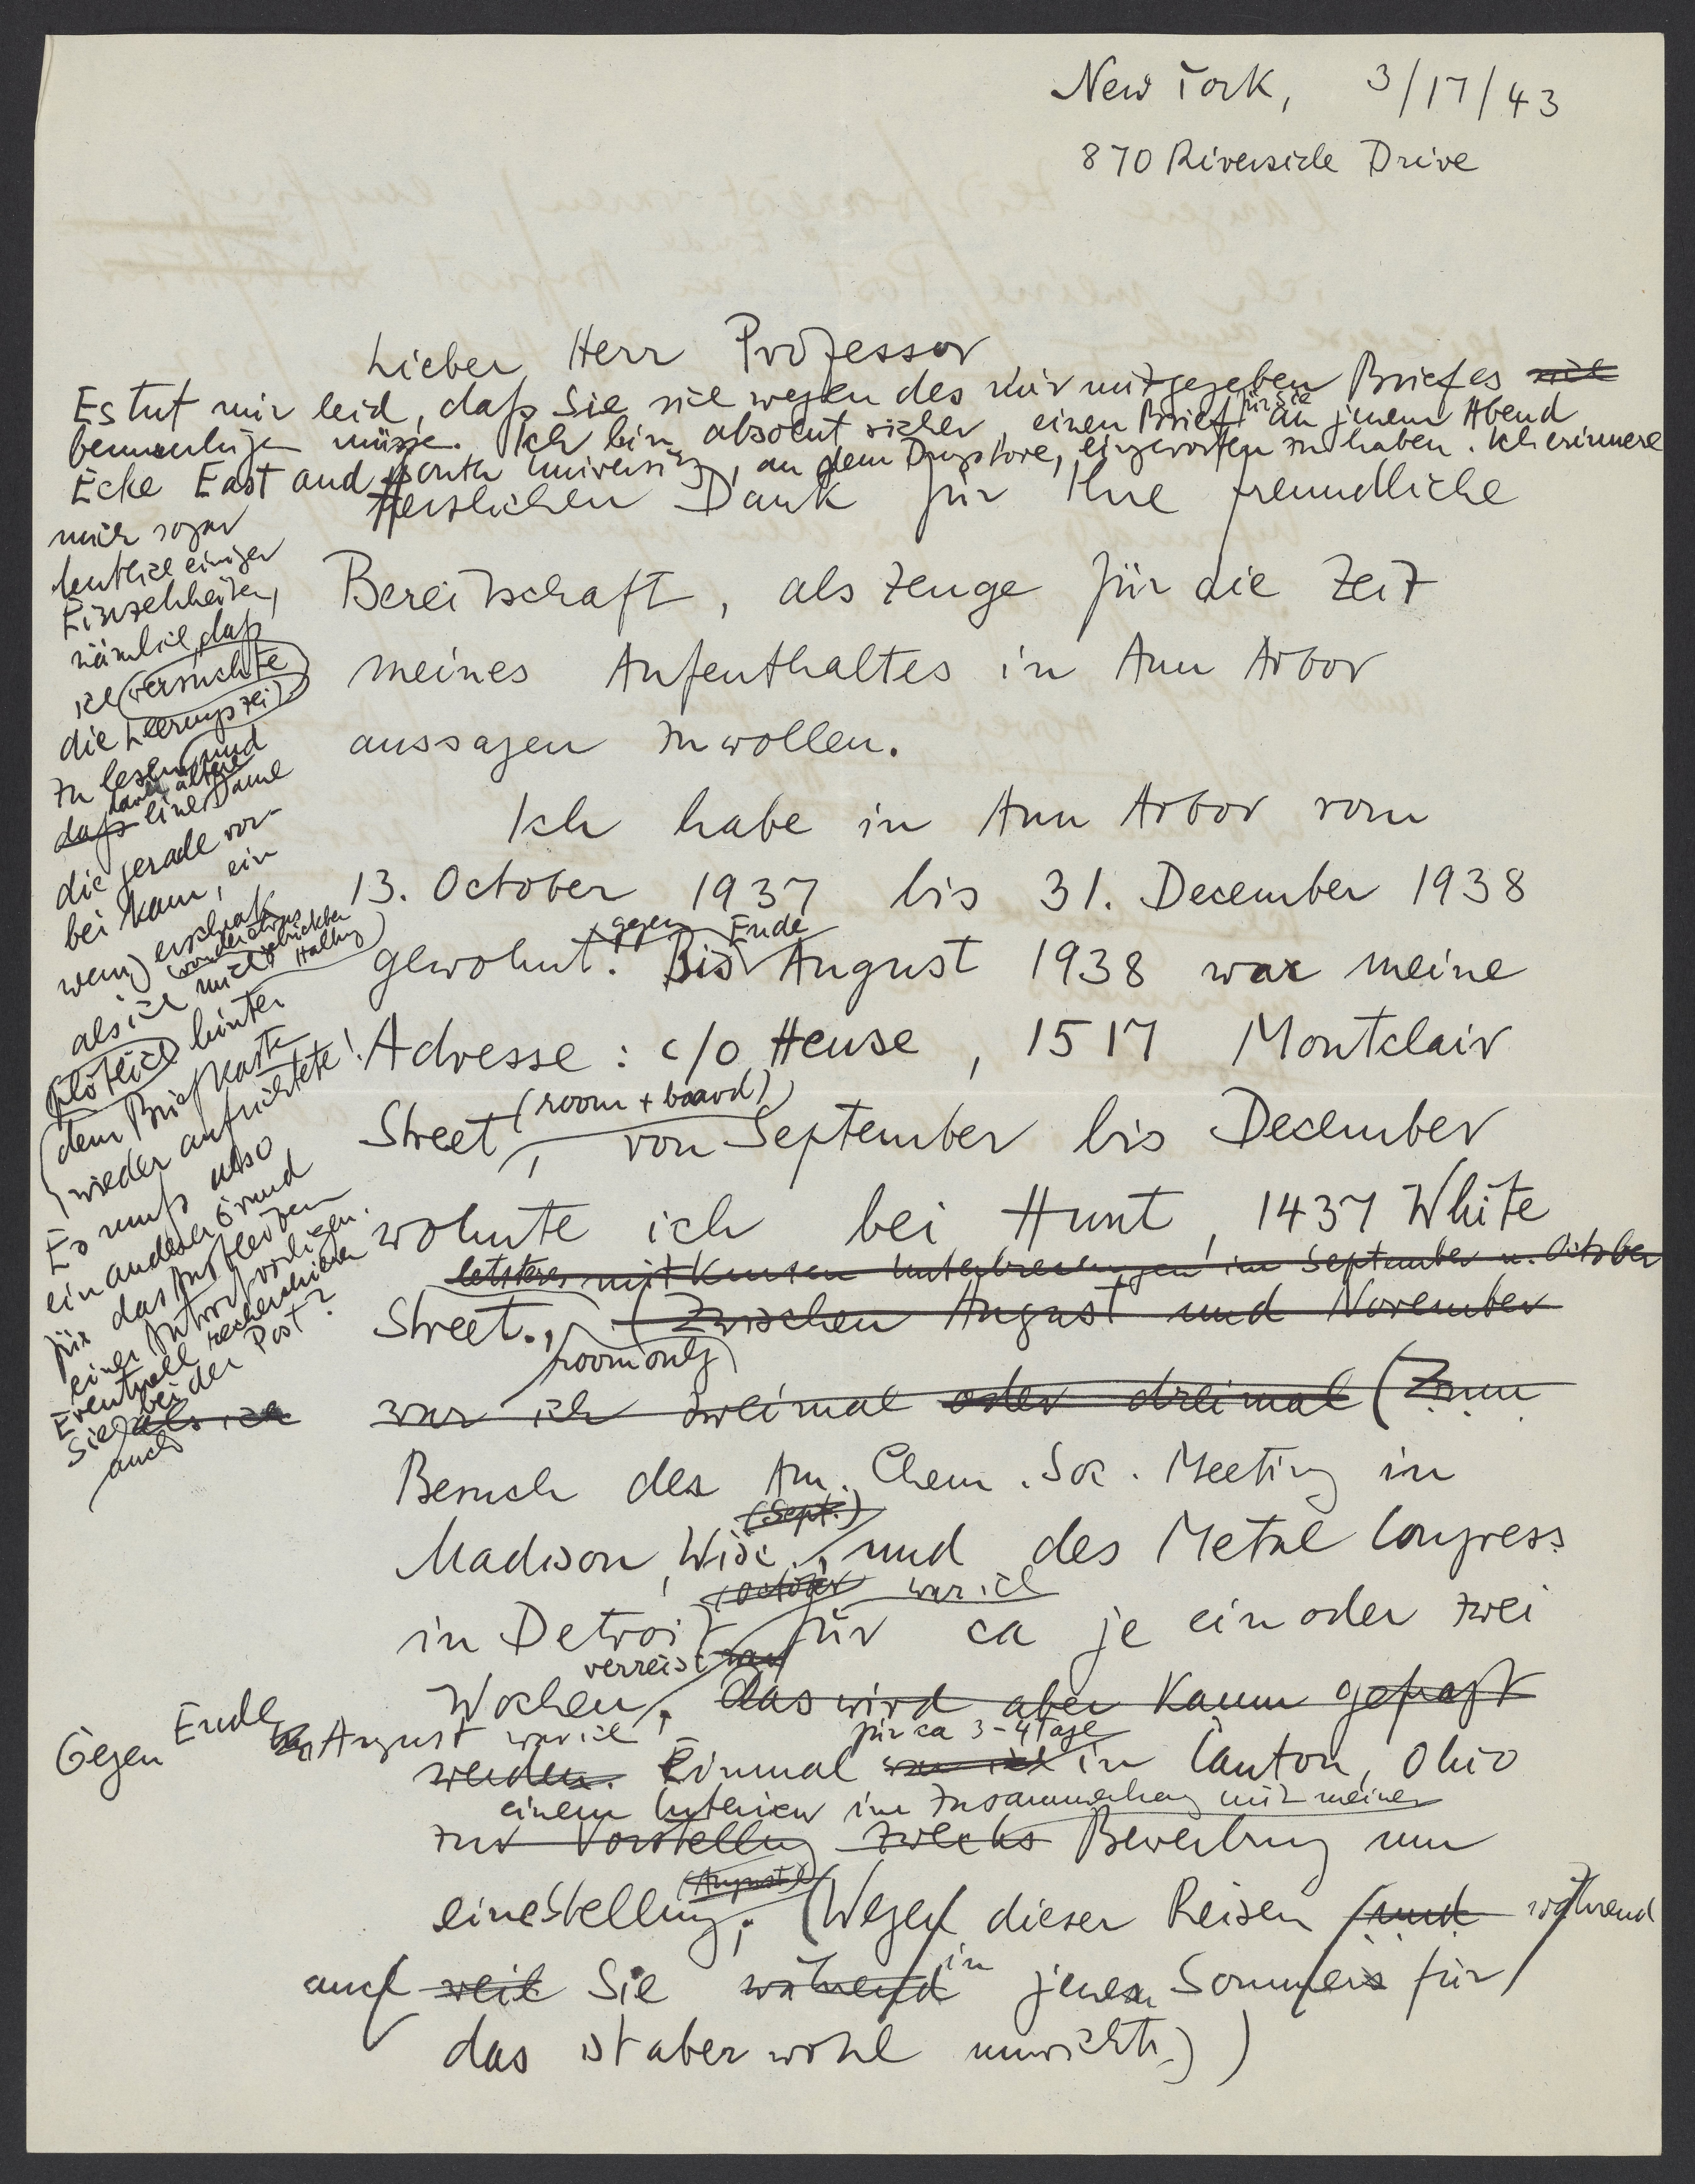 New York, 3/17/43
870 Riverside Drive
Lieber Herr Professor
Es tut mir leid, daß Sie sich wegen des mir mitgegeben Briefes sich
beunruhigen müsse. Ich bin absolut sicher, einen Brief für Sie an jenem Abend
Ecke East and South University, an dem Drugstore, eingeworfen zu haben. Ich erinnere
mich sogar
deutlich einiger
Einzelheiten,
nämlich, daß
ich versuchte
die Leerungszeit
zu lesen und
daß dann eine ältere Dame
die gerade vor-
bei kam, ein
wenig erschrak
als ich mich
plötzlich hinter
dem Briefkasten
wieder aufrichtete!
Es muß also
ein anderer Grund
für das Ausbleiben
einer Antwort vorliegen.
Eventuell recherchieren
Sie bei der Post?
auch als ich
Herzlichen Dank für Ihre freundliche
Bereitschaft, als Zeuge für die Zeit
meines Aufenthaltes in Ann Arbor
aussagen zu wollen.
Ich habe in Ann Arbor vom
13. October 1937 bis 31. December 1938
gegen Ende
gewohnt. Bis August 1938 war meine
Adresse: c/o Heuse, 1517 Montclair
(room + board)
Street, von September bis December
wohnte ich bei Hunt, 1437 White
letzteres mit kurzen Unterbrechungen im September u. October
Street., (Zwischen August und November
(room only)
war ich zweimal oder dreimal (Zum
Besuch des Am. Chem. Soc. Meeting in
(Sept.)
Madison, Wisc., und des Metal Congress
(October war ich
in Detroit für ca je ein oder zwei
verreist war
Wochen. Das wird aber kaum gefragt
Gegen Ende August war ich für ca 3-4 Tage
werden. Einmal war ich in Canton, Ohio
einem Interview im Zusammenhang mit meiner
zur Vorstellung zwecks Bewerbung um
(August)
eine Stellung. (Wegen dieser Reisen und während
auch weil Sie während in jenem Sommers für
das ist aber wohl unwichtig)